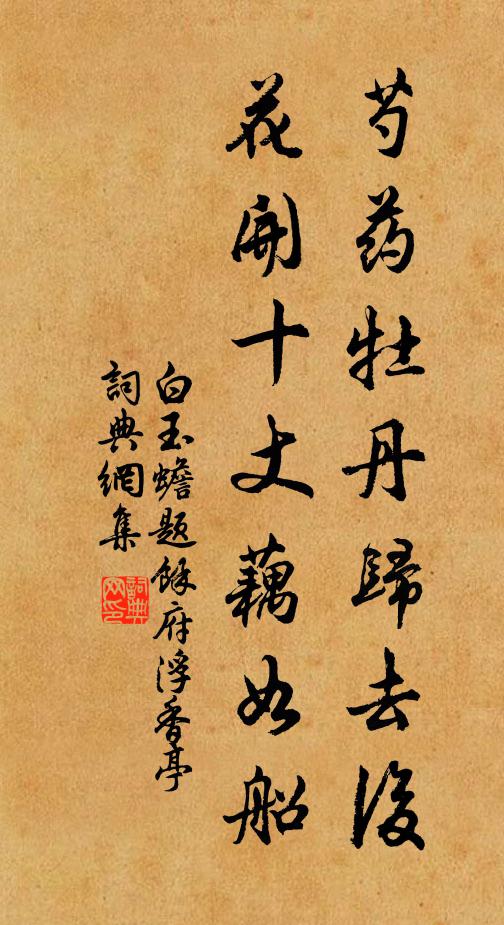 芍药牡丹歸去後
花開十丈藕如船
白玉蟾题餘府浮香亭
詞典網集
詞典網印